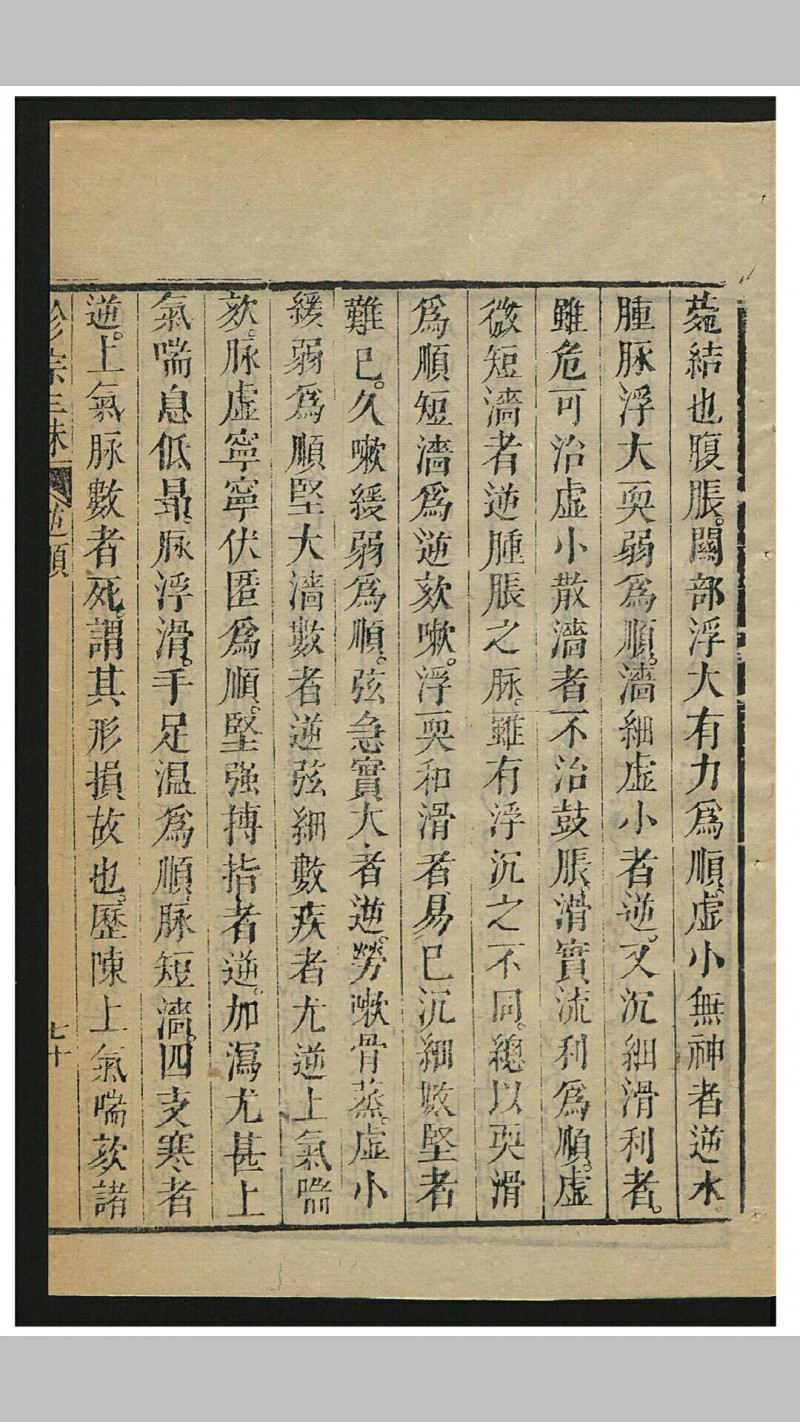 菀結也腹脹。關部浮大有力爲順。虛小無神者逆水。
腫脉浮大耎弱爲順。濇細虛小者逆。又沉細滑利者。
雖危可治虛小散濇者不治鼓脹。滑實流利爲順。虛
微短濇者逆腫脹之脉。雖有浮沉之不同。總以耎滑
爲順短濇爲逆欬嗽。浮耎和滑者易已沉細數堅者
難已。久嗽緩弱爲順。弦急實大者逆。勞嗽骨蒸。虛小
緩弱爲順堅大濇數者逆弦細數疾者尤逆上氣喘
欬。脉虛寧寧伏匿爲順。堅强搏指者逆。加瀉尤甚上
氣喘息低昻。脉浮滑。手足温爲順。脉短濇。四支寒者
逆。上氣脉數者死。謂其形損故也。歷陳上氣喘欬諸
診宗三昧 逆順 七十